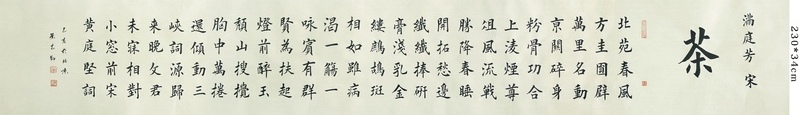 滿庭芳 宋
茶
北苑春風
方圭圓璧
萬里名動
京關碎身
粉骨功合
上淩煙蓴
俎風流戰
勝降春睡
開拓愁邊
纖纖捧研
膏淺乳金
縷鷓鴣斑
相如雖病
渴一觴一
詠賓有群
賢為扶起
燈前醉玉
頹山搜攪
胸中萬捲
還傾動三
峽詞源歸
來晚文君
未寐相對
小窓前宋
黃庭堅詞
230*34cm